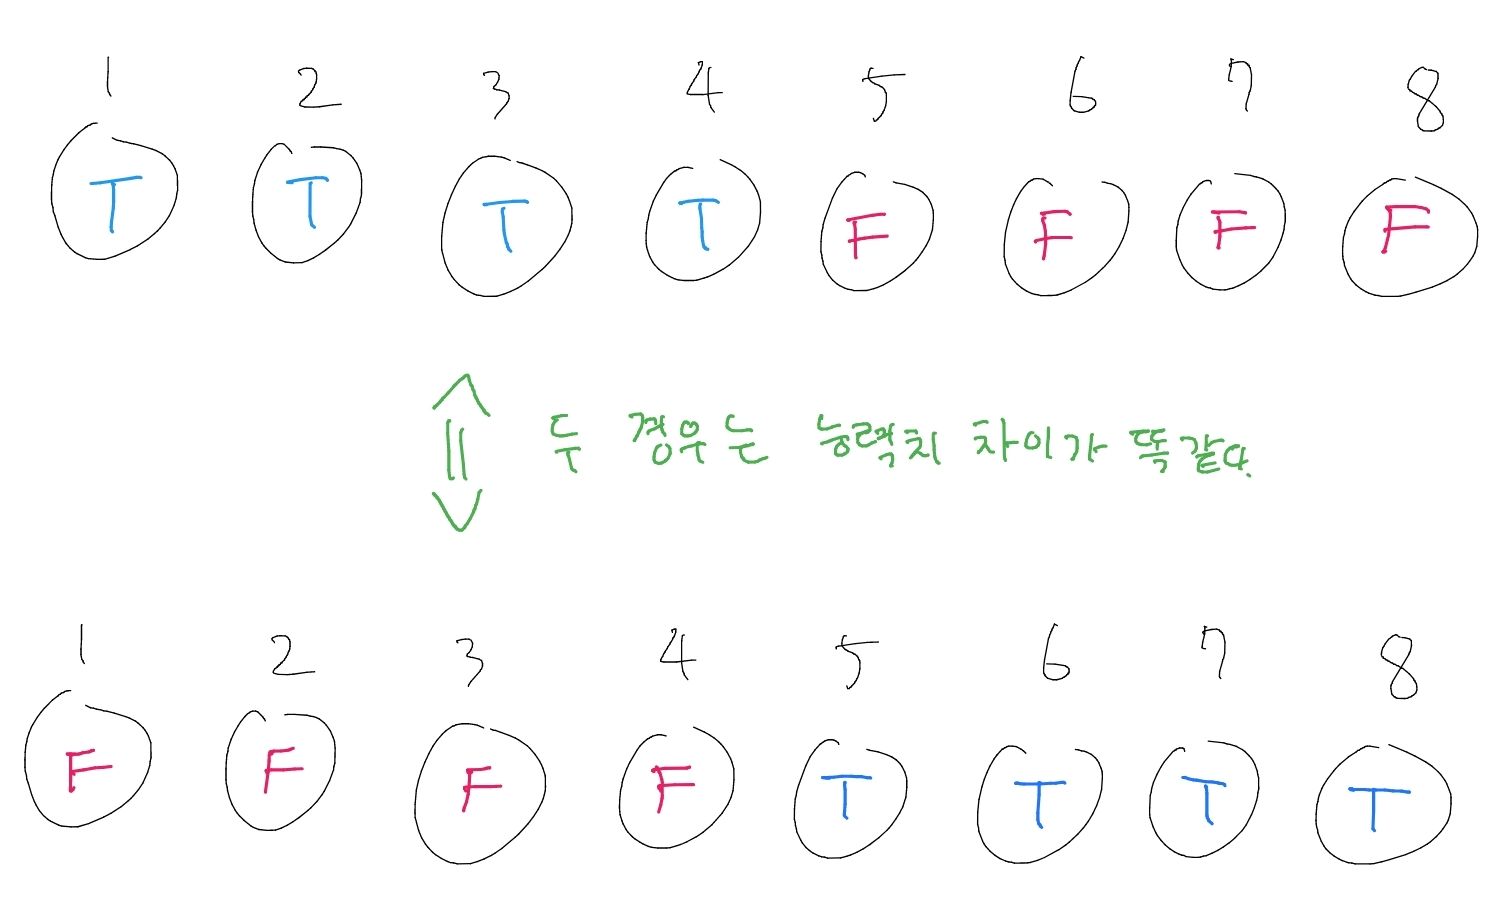 1 2 3 4 5 6 7 8
T T T T F F F F
두 경우는 능력치 차이가 똑같다.
1 2 3 4 5 6 7 8
F F F F T T T T